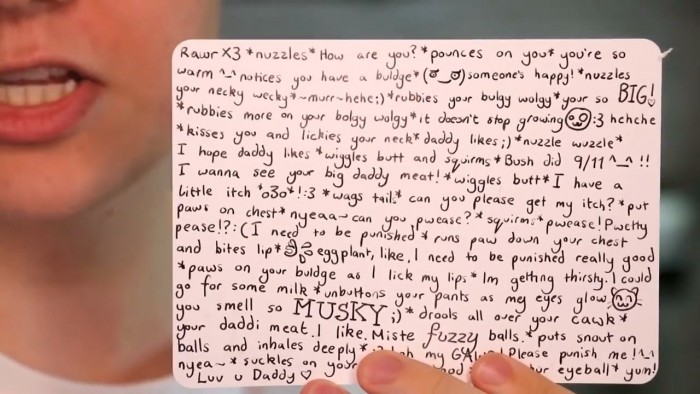 Rawr X3 *nuzzles* How are you? *pounces on you* you're so
warm ^_^ notices you have a buldge* (ಠ‿ಠ) someone's happy! *nuzzles
your necky wecky* ~murr~ hehe ;) *rubbies your bulgy wolgy* your so BIG!
*rubbies more on your bolgy wolgy* it doesn't stop growing :3 hehehe
*kisses you and lickies your neck* daddy likes ;) *nuzzle wuzzle*
I hope daddy likes *wiggles butt and squirms* Bush did 9/11 ^_^ !!
I wanna see your big daddy meat! *wiggles butt* I have a
little itch *o3o*! :3 *wags tail* can you please get my itch? *put
paws on chest* nyeaa~ can you pwease? *squirms* pwease! Pwetty
pease!? :( I need to be punished *runs paw down your chest
and bites lip* eggplant, like, I need to be punished really good
*paws on your buldge as I lick my lips* Im getting thirsty. I could
go for some milk *unbuttons your pants as my eyes glow.
you smell so MUSKY ;) *drools all over your cawk*
your daddi meat. I like. Miste fuzzy balls. *puts snout on
balls and inhales deeply* my Please punish me! ^_^
nyea~ *suckles on your eyeball* yum!
Luv u Daddy ♡